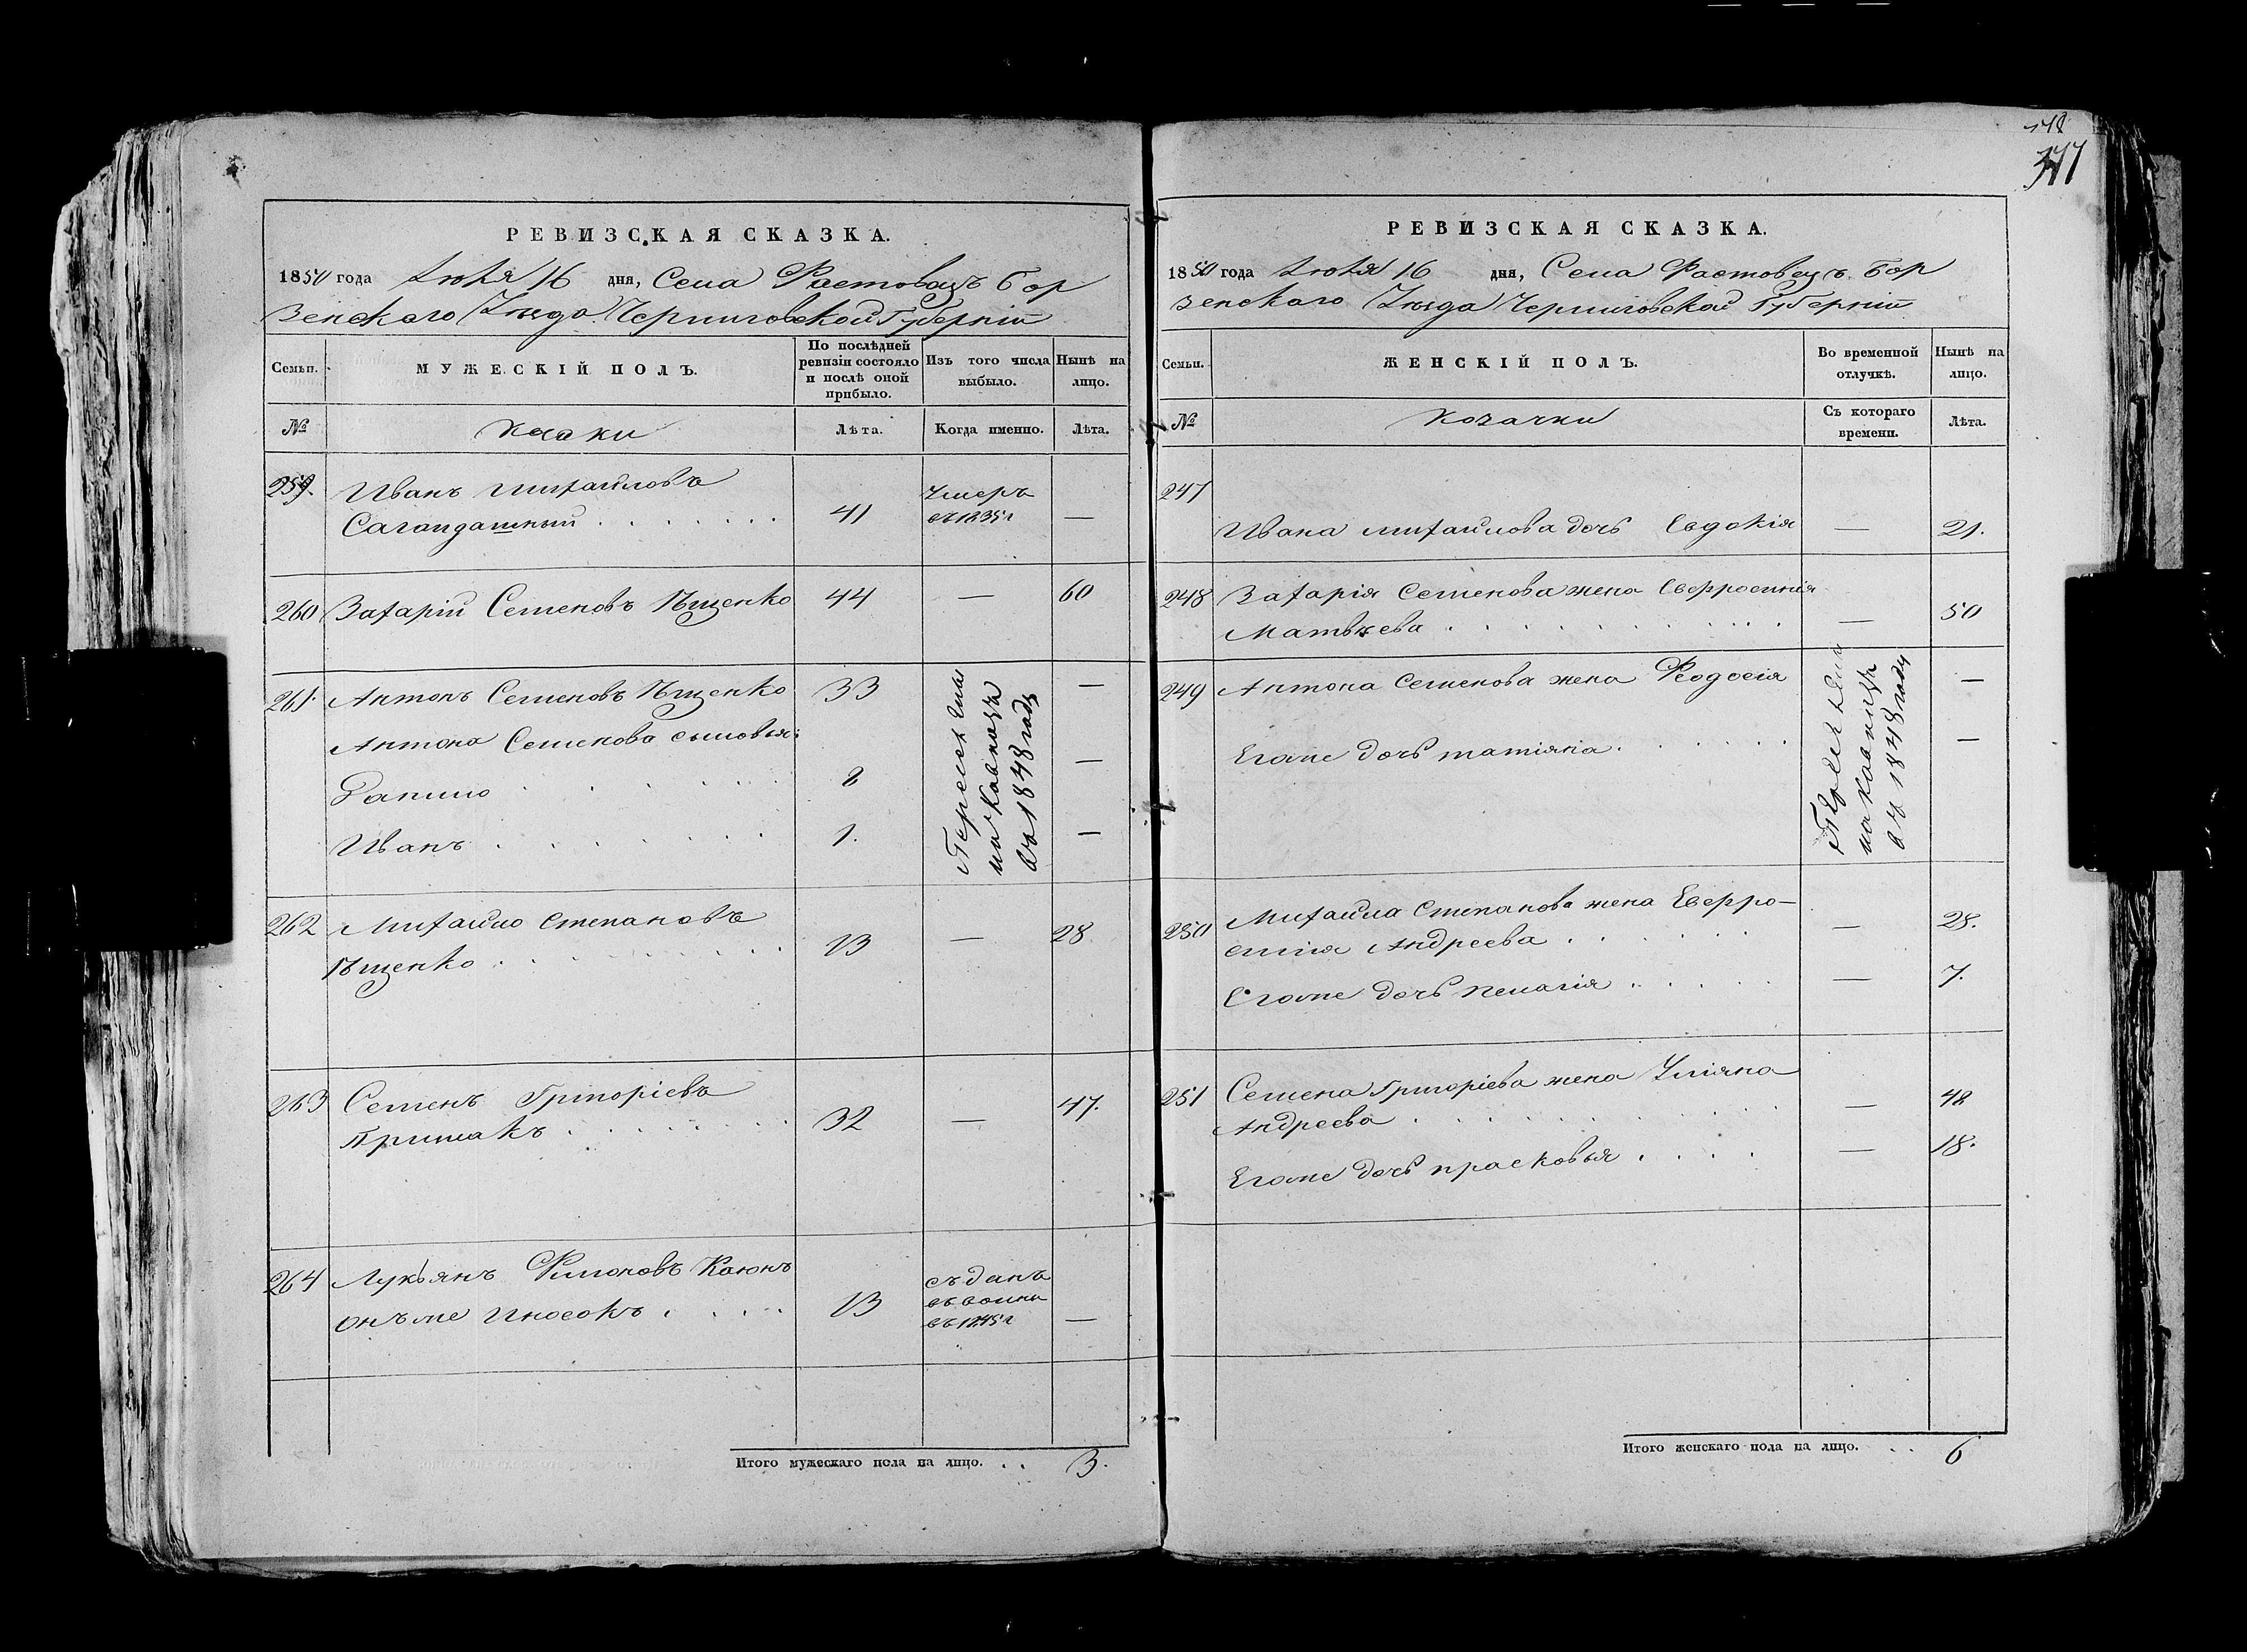 178
377
РЕВИЗСКАЯ СКАЗКА.
1850 года Июля 16 дня, Села Фастовецъ Бор
зенскаго Уѣзда Черниговской Губерніи
Семьи.
МУЖЕСКІЙ ПОЛЪ.
По послѣдней ревизіи состояло и послѣ оной прибыло.
Изъ того числа выбыло.
Нынѣ на лицо.
№
Козаки
Лѣта.
Когда именно.
Лѣта.
259. Иванъ Михайловъ
Сагайдашный . . . . . . . 41 Умеръ въ 1835г —
260 Захарій Семеновъ Ищенко 44 — 60
261. Антонъ Семеновъ Ищенко 33 —
Антона Семенова сыновья:
Данило . . . . . 8 —
Иванъ . . . . . . . 1. —
Переселенъ
на Кавказъ
въ 1848 году
262 Михайло Степановъ
Ищенко . . . . . . . . 13 — 28
263 Семенъ Григоріевъ
Примакъ . . . . . . . 32 — 47.
264 Лукьянъ Филоновъ Каюнъ
онъ же Иносокъ . . . . 13 съданъ —
въ 1845г
Итого мужескаго пола на лицо. . . 3.
РЕВИЗСКАЯ СКАЗКА.
1850 года Июля 16 дня, Села Фастовецъ Бор
зенскаго Уѣзда Черниговской Губерніи
Семьи.
ЖЕНСКІЙ ПОЛЪ.
Во временной отлучкѣ.
Нынѣ на лицо.
№
Козачки
Съ котораго времени.
Лѣта.
247
Ивана Михайлова дочь Евдокія — 21.
248 Захарія Семенова жена Евфросинія
Матвѣева . . . . . . . . . . . — 50
249 Антона Семенова жена Феодосія —
Егоже дочь татіяна . . . . . . —
на Кавказъ
въ 1848 году
250 Михайла Степанова жена Евфро-
синія Андреева . . . . . . — 28.
Егоже дочь пелагія . . . . . — 7.
251 Семена Григоріева жена Уліяна
Андреева . . . . . . . . . . . — 48
Егоже дочь прасковья . . . . — 18.
Итого женскаго пола на лицо. . . 6